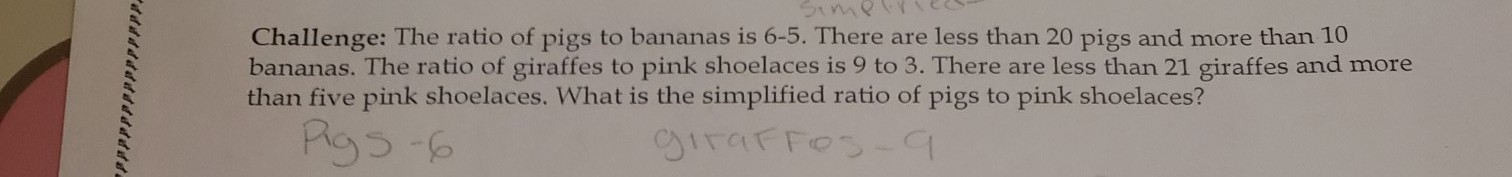 simplified
Challenge: The ratio of pigs to bananas is 6-5. There are less than 20 pigs and more than 10
bananas. The ratio of giraffes to pink shoelaces is 9 to 3. There are less than 21 giraffes and more
than five pink shoelaces. What is the simplified ratio of pigs to pink shoelaces?
Pigs-6 giraffes-9